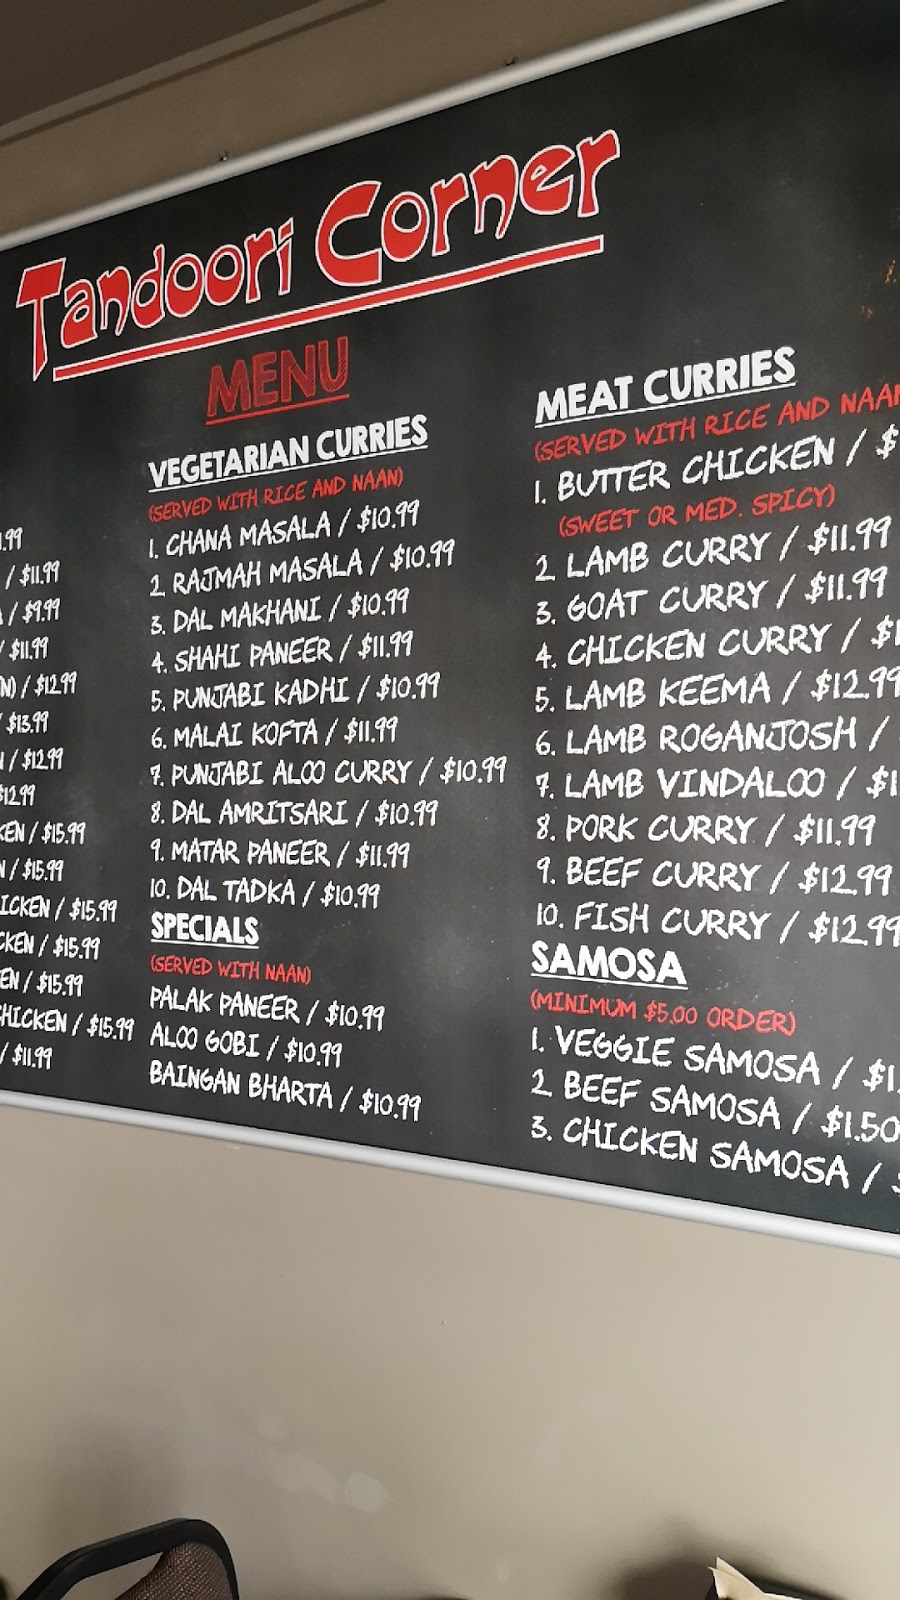 Tandoori Corner
MENU
.99
/ $11.99
/ $9.99
/ $11.99
/ $12.99
/ $13.99
/ $12.99
$12.99
/ $15.99
/ $15.99
/ $15.99
/ $15.99
/ $15.99
CHICKEN / $15.99
/ $11.99
VEGETARIAN CURRIES
(SERVED WITH RICE AND NAAN)
1. CHANA MASALA / $10.99
2. RAJMAH MASALA / $10.99
3. DAL MAKHANI / $10.99
4. SHAHI PANEER / $11.99
5. PUNJABI KADHI / $10.99
6. MALAI KOFTA / $11.99
7. PUNJABI ALOO CURRY / $10.99
8. DAL AMRITSARI / $10.99
9. MATAR PANEER / $11.99
10. DAL TADKA / $10.99
SPECIALS
(SERVED WITH NAAN)
PALAK PANEER / $10.99
ALOO GOBI / $10.99
BAINGAN BHARTA / $10.99
MEAT CURRIES
(SERVED WITH RICE AND NAAN
1. BUTTER CHICKEN / $
(SWEET OR MED. SPICY)
2. LAMB CURRY / $11.99
3. GOAT CURRY / $11.99
4. CHICKEN CURRY / $1
5. LAMB KEEMA / $12.99
6. LAMB ROGANJOSH /
7. LAMB VINDALOO / $1
8. PORK CURRY / $11.99
9. BEEF CURRY / $12.99
10. FISH CURRY / $12.99
SAMOSA
(MINIMUM $5.00 ORDER)
1. VEGGIE SAMOSA / $1.
2. BEEF SAMOSA / $1.50
3. CHICKEN SAMOSA / $